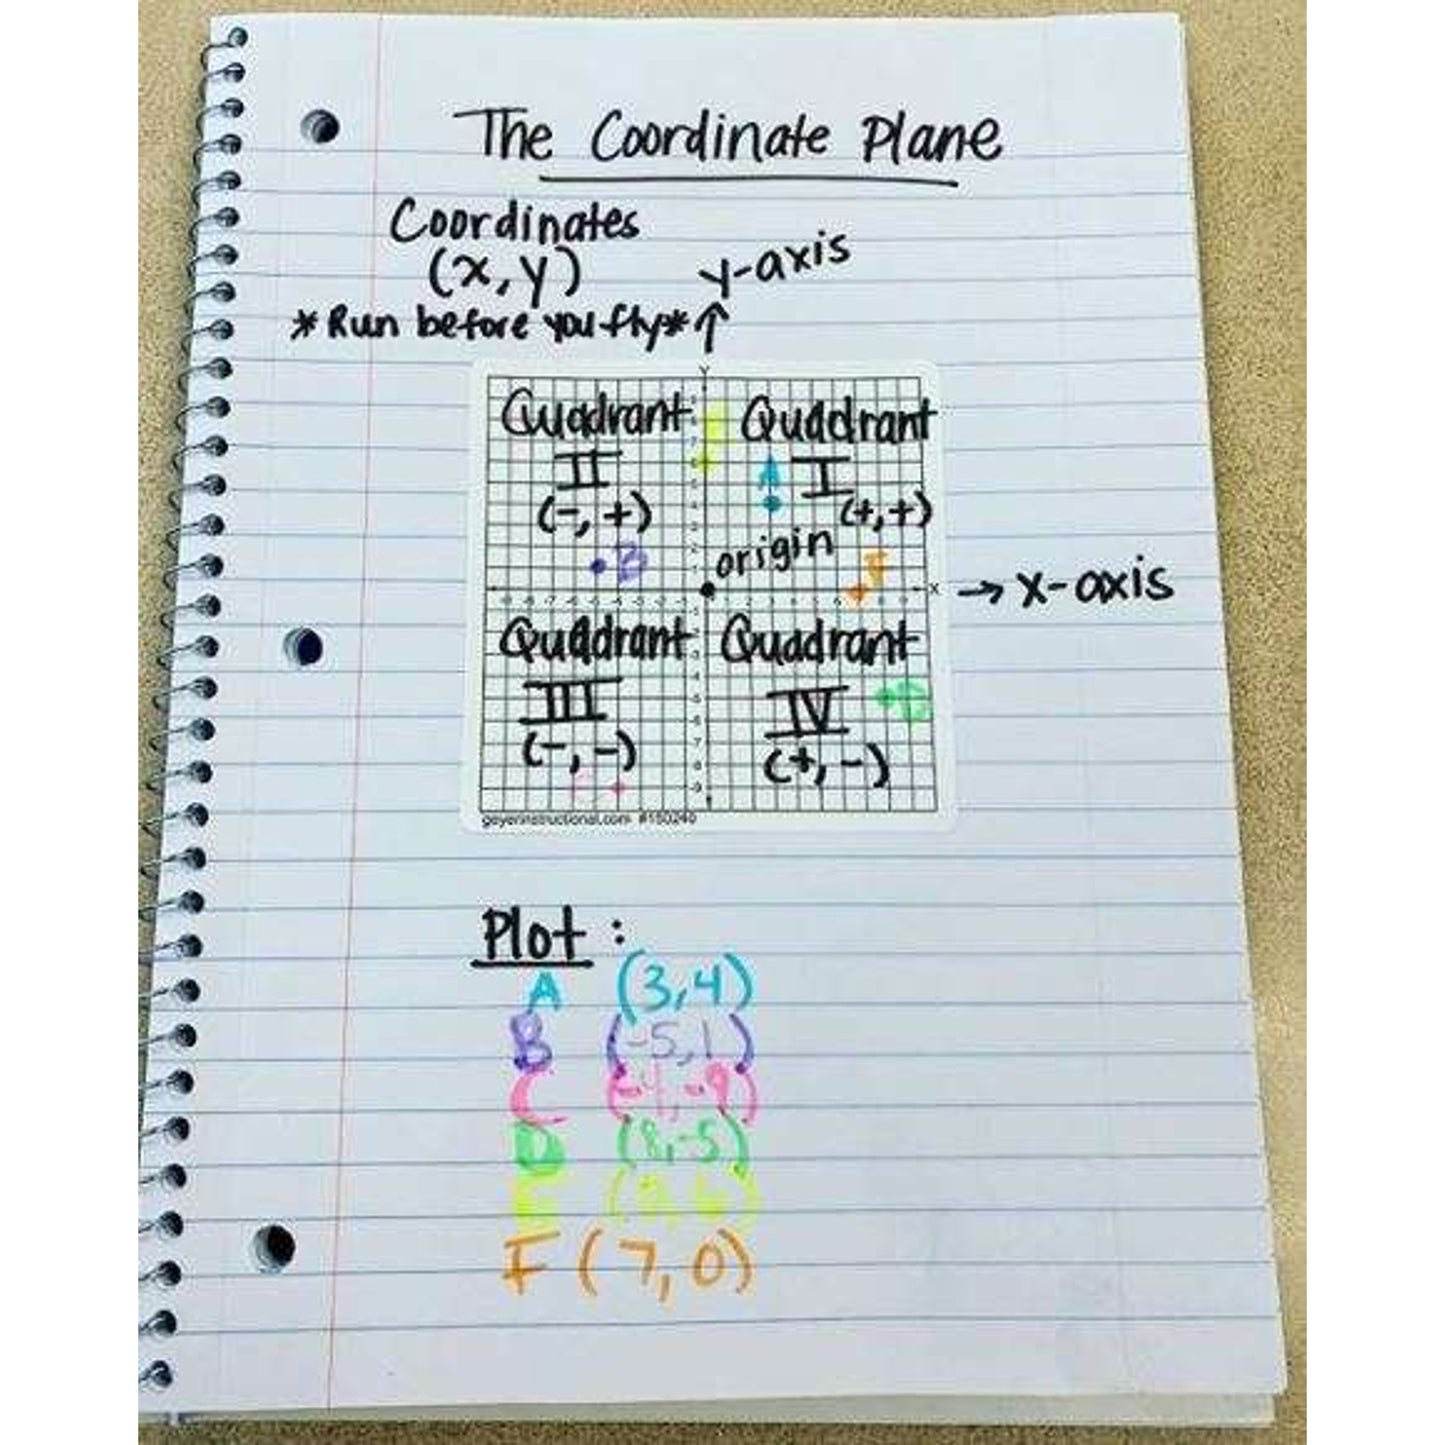 The Coordinate Plane
Coordinates
(x,y)
y-axis
*Run before you fly*
Y
Quadrant
II
(-,+)
Quadrant
I
(+,+)
A
B
origin
F
X
x-axis
Quadrant
III
(-,-)
Quadrant
IV
(+,-)
D
C
geyerinstructional.com #150240
Plot:
A (3,4)
B (-5,1)
C (-4,-9)
D (8,-5)
E (0,6)
F (7,0)